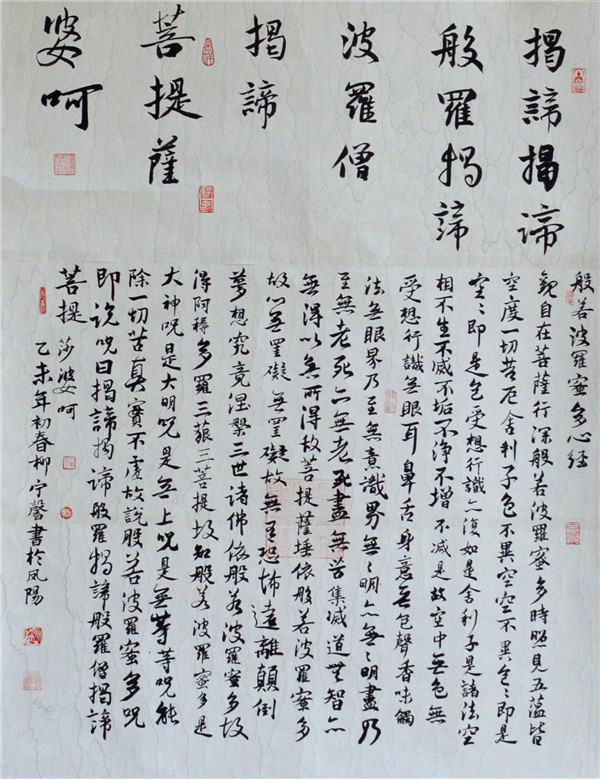 揭諦揭諦
般羅揭諦
波羅僧
揭諦
菩提薩
婆呵
般若波羅蜜多心經
觀自在菩薩行深般若波羅蜜多時照見五蘊皆
空度一切苦厄舍利子色不異空空不異色〻即是
空〻即是色受想行識亦復如是舍利子是諸法空
相不生不滅不垢不淨不增不減是故空中無色無
受想行識無眼耳鼻舌身意無色聲香味觸
法無眼界乃至無意識界無〻明亦無〻明盡乃
至無老死亦無老死盡無苦集滅道無智亦
無得以無所得故菩提薩埵依般若波羅蜜多
故心無罣礙無罣礙故無有恐怖遠離顛倒
夢想究竟涅槃三世諸佛依般若波羅蜜多故
得阿耨多羅三藐三菩提故知般若波羅蜜多是
大神咒是大明咒是無上咒是無等等咒能
除一切苦真實不虛故說般若波羅蜜多咒
即說咒曰揭諦揭諦般羅揭諦般羅僧揭諦
菩提莎婆呵
乙未年初春柳宇馨書於鳳陽